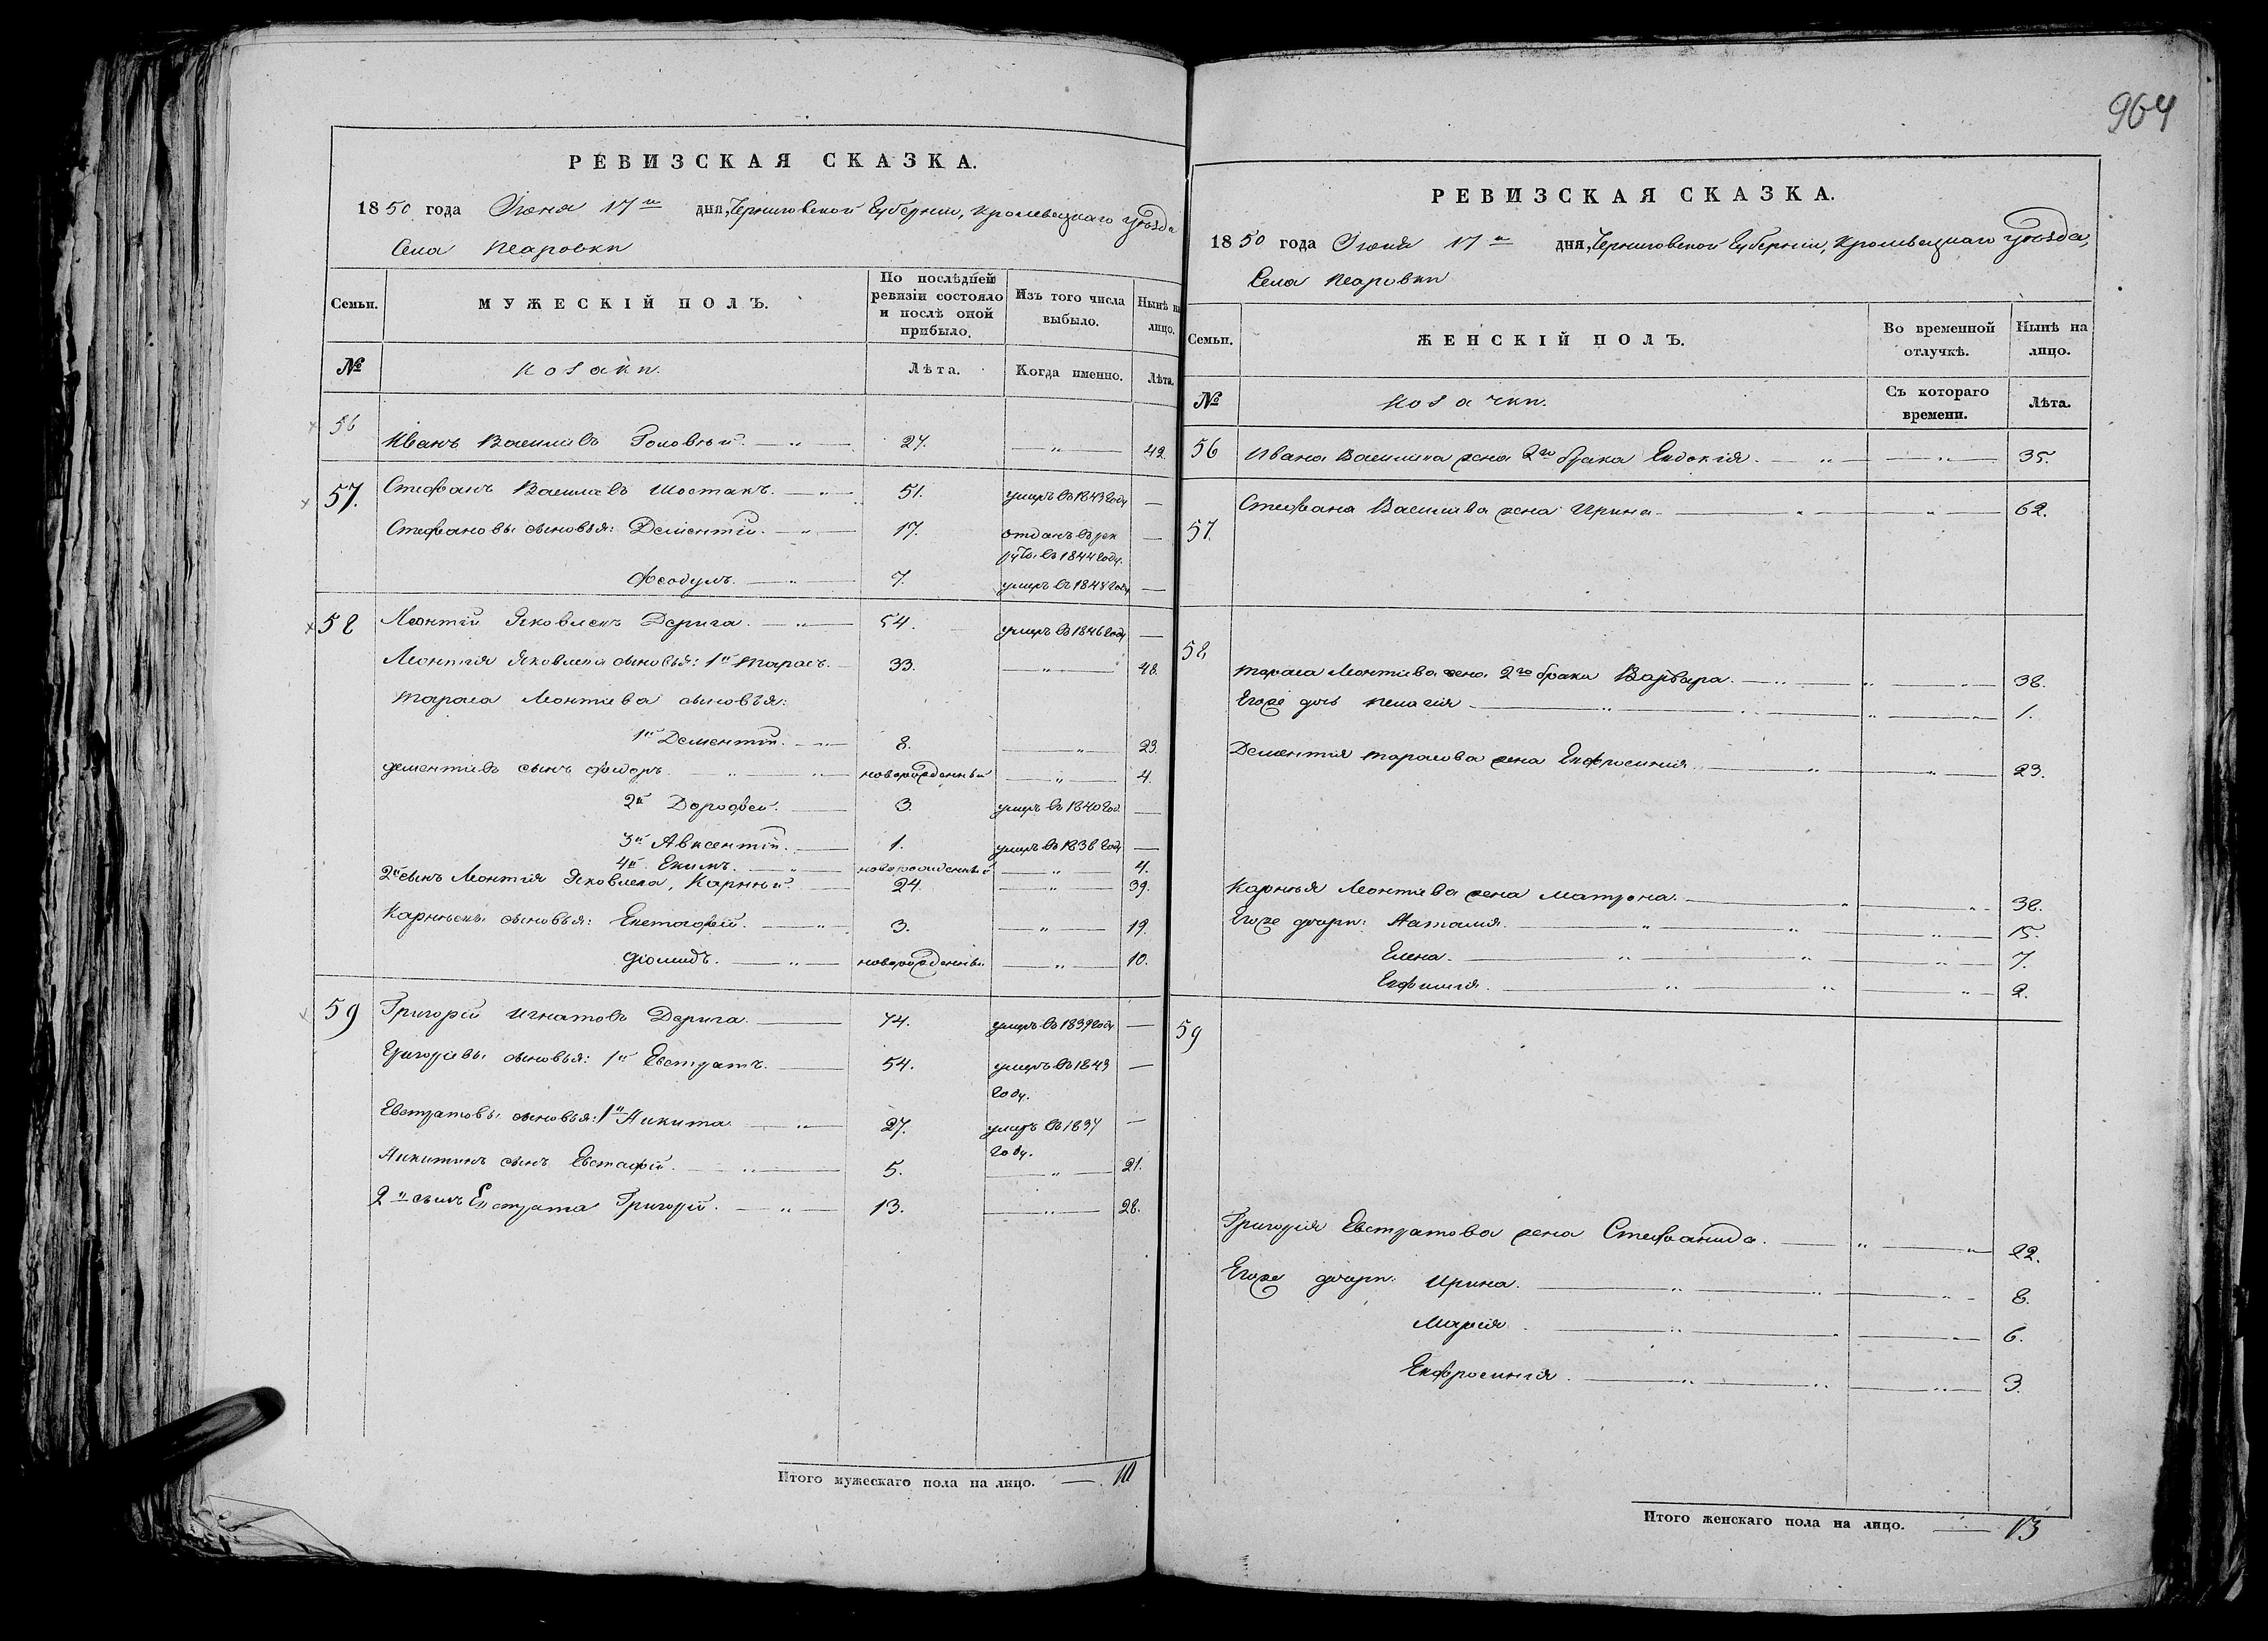 964
РЕВИЗСКАЯ СКАЗКА.
1850 года Июня 17го дня, Черниговской Губерніи, Кролевецкаго уѣзда
Села
Семьи. МУЖЕСКІЙ ПОЛЪ. По послѣдней ревизіи состояло и послѣ оной прибыло. Изъ того числа выбыло. Нынѣ на лицо.
№ Козаки. Лѣта. Когда именно. Лѣта.
56 Иванъ Василіевъ Головный. — " — 27. — " — 42.
57. Стефанъ Василіевъ Шостакъ. — " — 51. умеръ въ 1843 году —
Стефановы сыновья: Дементій. — " — 17. отданъ въ рекруты въ 1844 году. —
Феодулъ. — " — 7. умеръ въ 1848 году —
58 Леонтій Яковлевъ Дерига. — " — 54. умеръ въ 1846 году —
Леонтія Яковлева сыновья: 1й Тарасъ. — 33. — " — 48.
Тараса Леонтіева сыновья:
1й Дементій. — " — 8. — " — 23.
Дементіевъ сынъ Федоръ. — " — " новорожденный — " — 4.
2й Дорофей. — 3. умеръ въ 1840 год. —
3й Авксентій. — 1. умеръ въ 1838 году —
4й Екимъ. — " новорожденный — " — 4.
2й сынъ Леонтія Яковлева, Карній. — 24. — " — 39.
Карнѣевы сыновья: Евстафій. — " — 3. — " — 19.
Діомидъ. — " — новорожденный — " — 10.
59 Григорій Игнатовъ Дерига. — 74. умеръ въ 1839 году —
Григоріевы сыновья: 1й Евстратъ. — 54. умеръ въ 1843 году. —
Евстратовы сыновья: 1й Никита. — " — 27. умеръ въ 1837 году. —
Никитинъ сынъ Евстафій. — " — 5. — " — 21.
2й сынъ Евстрата Григорій. — " — 13. — " — 28.
Итого мужескаго пола на лицо. — 10
РЕВИЗСКАЯ СКАЗКА.
1850 года Июня 17го дня, Черниговской Губерніи, Кролевецкаго уѣзда,
Села
Семьи. ЖЕНСКІЙ ПОЛЪ. Во временной отлучкѣ. Нынѣ на лицо.
№ Козачки. Съ котораго времени. Лѣта.
56 Ивана Василіева жена 2го брака Евдокія. — " — " — 35.
57. Стефана Василіева жена Ирина. — " — " — 62.
58. Тараса Леонтіева жена 2го брака Варвара. — " — " — " — 38.
Егоже дочь Пелагія — " — " — " — 1.
Дементія Тарасова жена Евфросинія. — " — " — 23.
Карнѣя Леонтіева жена Матрона. — " — " — 38.
Егоже дочери: Наталія. — " — " — " — 15.
Елена. — " — " — " — 7.
Евфимія. — " — " — " — 2.
59
Григорія Евстратова жена Стефанида. — " — " — 22.
Егоже дочери: Ирина. — " — " — " — 8.
Марія. — " — " — " — 6.
Евфросинія. — " — " — " — 3.
Итого женскаго пола на лицо. — 13